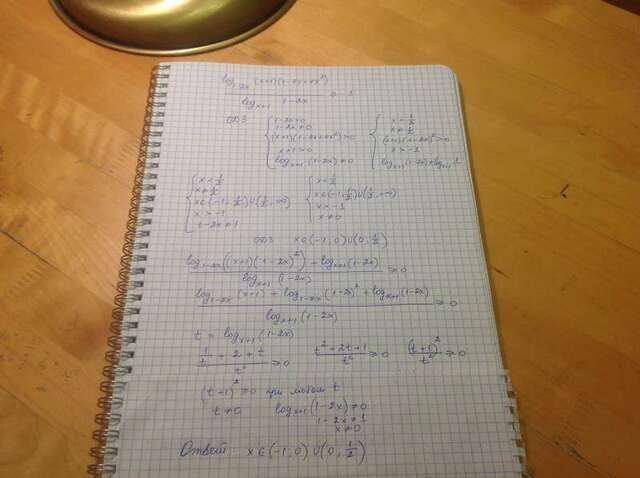 log₁₋₂ₓ (x+1)(1-4x+4x²)
logₓ₊₁ 1-2x ≥ -1
ОДЗ { 1-2x>0 { x < 1/2
1-2x≠0 x ≠ 1/2
(x+1)(1-4x+4x²)>0 (x+1)(1-2x)²>0
x+1>0 x > -1
logₓ₊₁(1-2x)≠0 logₓ₊₁(1-2x)≠logₓ₊₁1
{ x < 1/2 { x < 1/2
x ≠ 1/2 x∈(-1, 1/2)∪(1/2, +∞)
x∈(-1, 1/2)∪(1/2, +∞) x > -1
x > -1 x ≠ 0
1-2x≠1
ОДЗ x∈(-1,0)∪(0, 1/2)
log₁₋₂ₓ((x+1)(1-2x)²) + logₓ₊₁(1-2x) / logₓ₊₁(1-2x) ≥0
log₁₋₂ₓ(x+1) + log₁₋₂ₓ(1-2x)² + logₓ₊₁(1-2x) / logₓ₊₁(1-2x) ≥0
t = logₓ₊₁(1-2x)
1/t + 2 + t / t² ≥0 t²+2t+1 / t² ≥0 (t+1)² / t² ≥0
(t+1)² ≥0 при любом t
t≠0 logₓ₊₁(1-2x)≠0
1-2x≠1
x≠0
Ответ: x∈(-1,0)∪(0, 1/2)